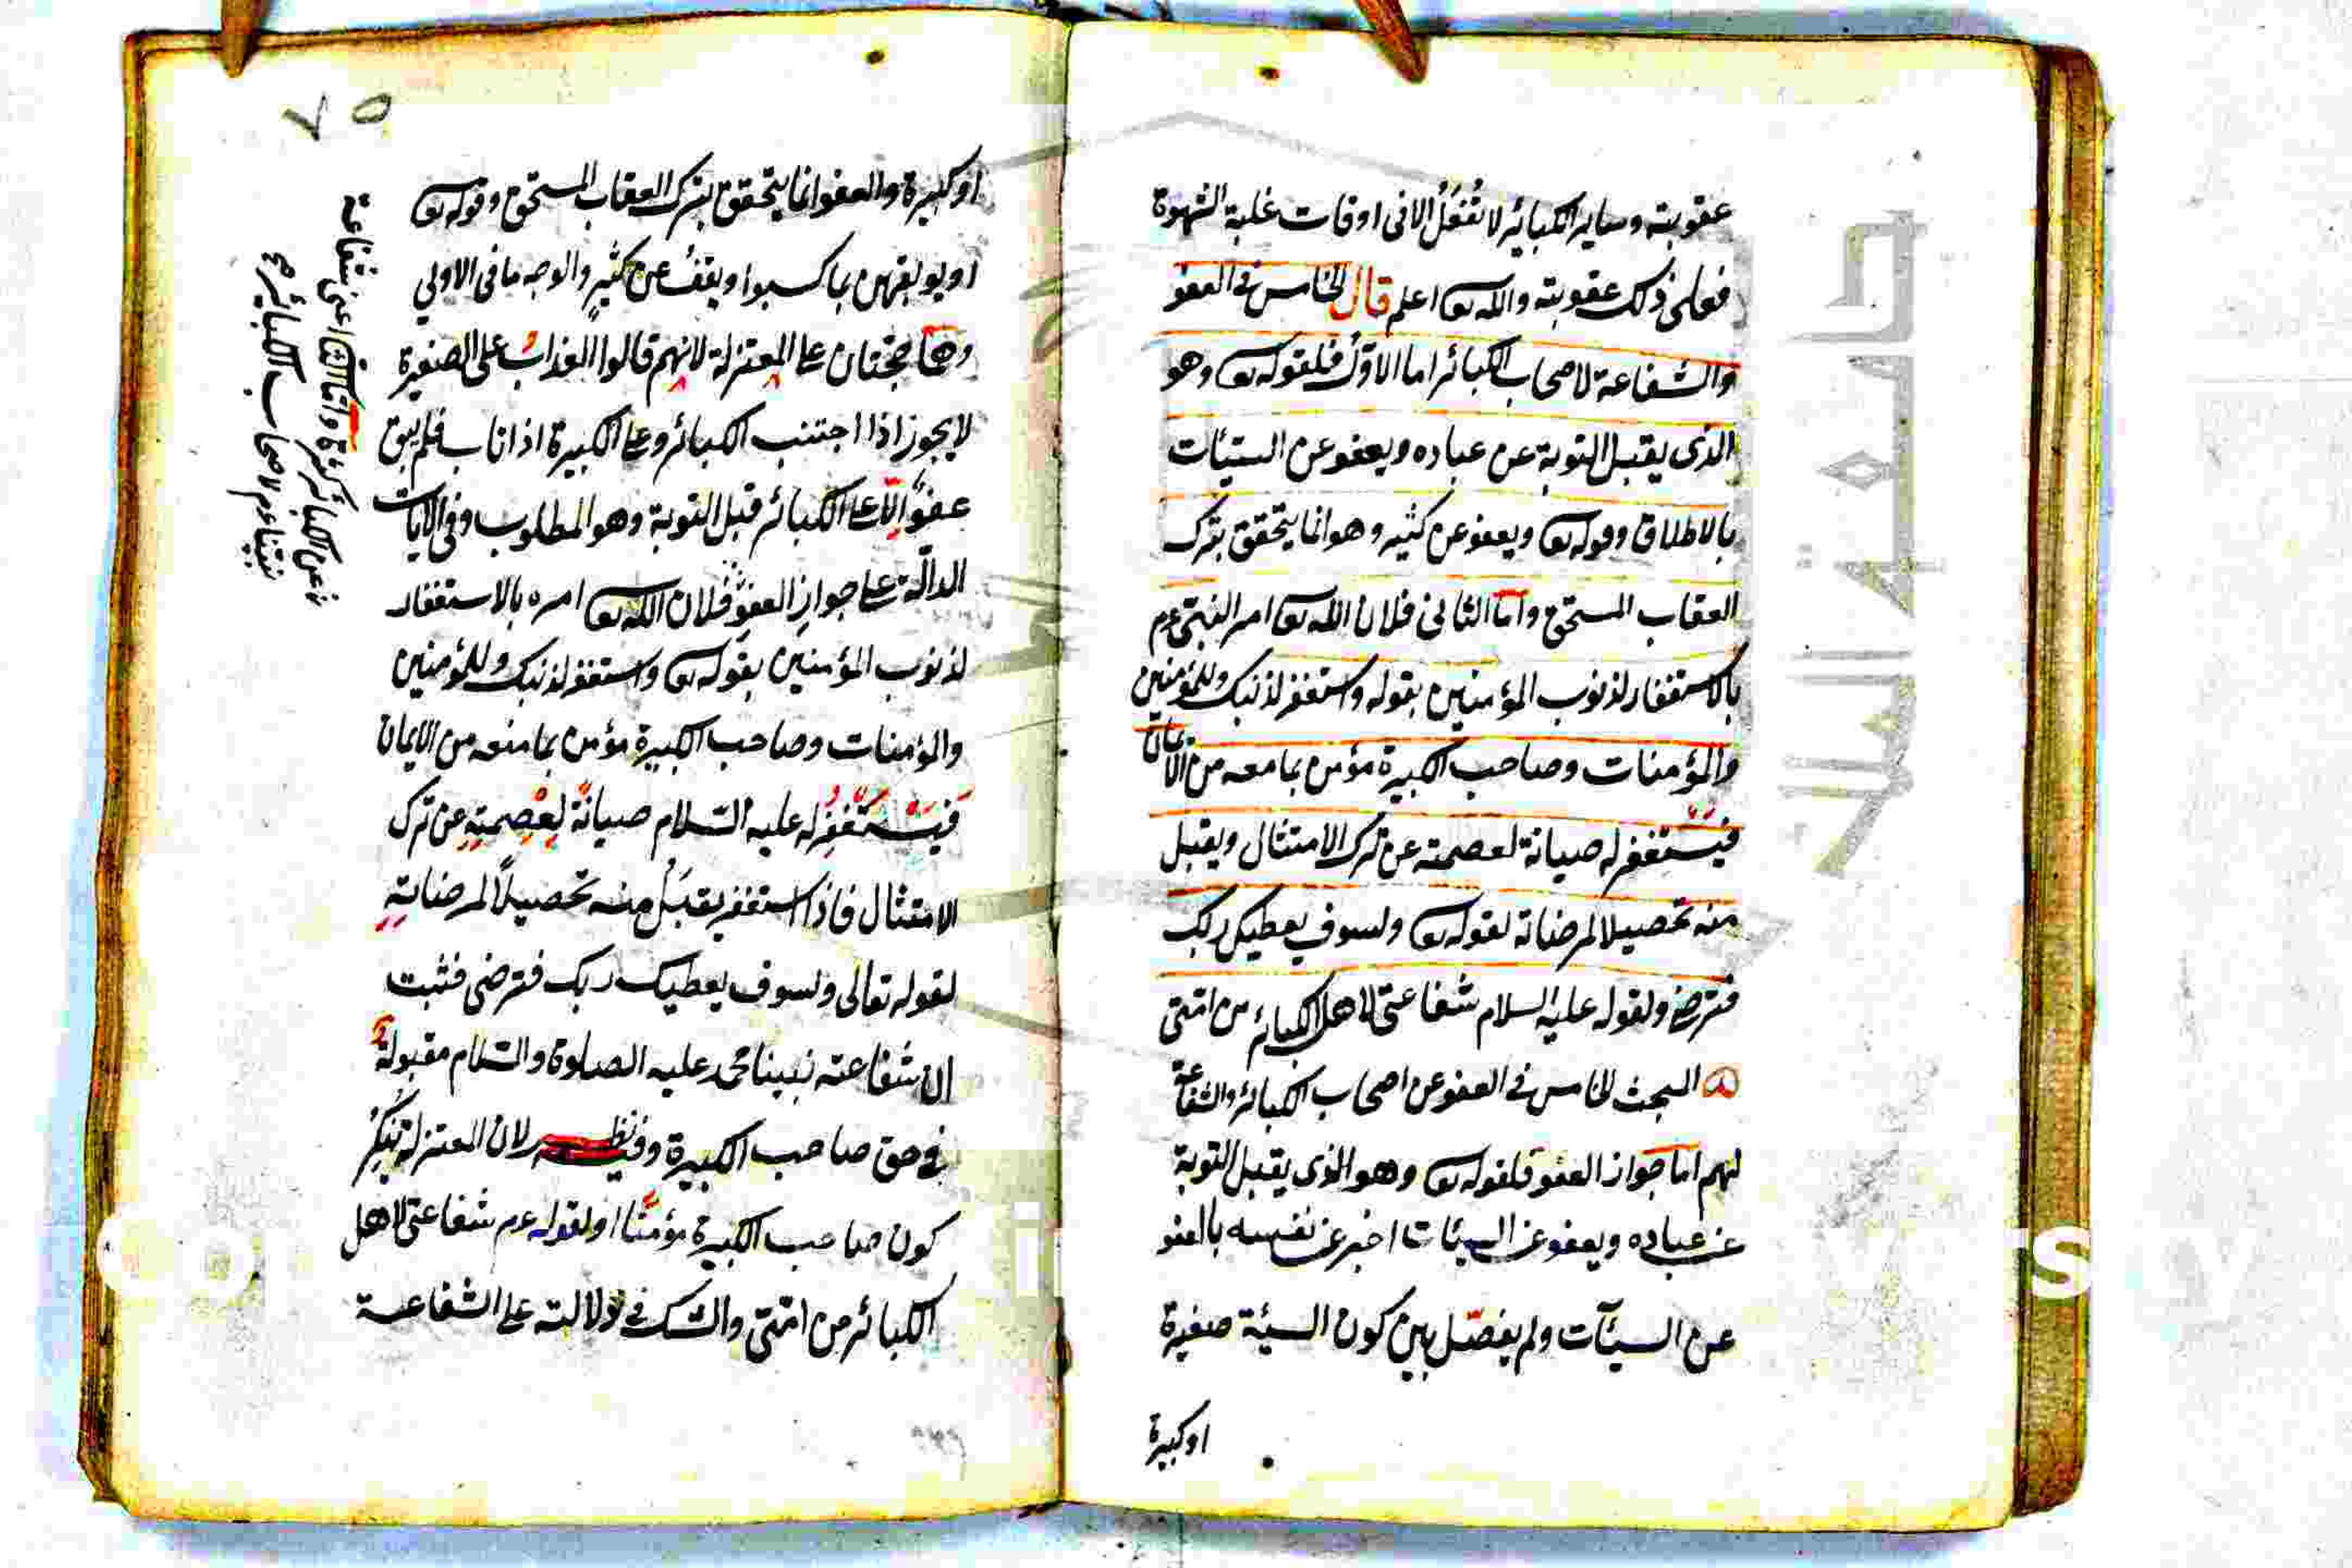 عقوبته وساير الكبائر لا تُفْعَلُ الا فى اوقات غلبة الشهوة
فعلى ذلك عقوبته والله تع اعلم قال الخامس فى العفو
والشفاعة لاصحاب الكبائر اما الاوّل فلقوله تع وهو
الذى يقبل التوبة عن عباده ويعفو عن السيئات
بالاطلاق وقوله تع ويعفو عن كثير وهو انما يتحقق بترك
العقاب المستحق واما الثانى فلان الله تع امر النبى عم
بالاستغفار لذنوب المؤمنين بقوله واستغفر لذنبك وللمؤمنين
والمؤمنات وصاحب الكبيرة مؤمن بما معه من الايمان
فيستغفر له صيانة لعصمته عن ترك الامتثال ويقبل
منه تحصيلا لمرضاته لقوله تع ولسوف يعطيك ربك
فترضى ولقوله عليه السلام شفاعتى لاهل الكبائر من امتى
المبحث الخامس فى العفو عن اصحاب الكبائر والشفاعة
لهم اما جواز العفو فلقوله تع وهو الذى يقبل التوبة
عن عباده ويعفو عن السيئات اخبر عن نفسه بالعفو
عن السيآت ولم يفصّل بين كون السيئة صغيرة
او كبيرة
٧٥
او كبيرة والعفو انما يتحقق بترك العقاب المستحق وقوله تع
او يوبقهن بما كسبوا ويعف عن كثيرٍ والوجه ما فى الاولي
وهما حجتان على المعتزلة لانهم قالوا العذابُ على الصغيرة
لا يجوز اذا اجتنب الكبائر وعلى الكبيرة اذا تاب فلم يبق
عفوًا الّا على الكبائر قبل التوبة وهو المطلوب وفى الايات
الدالّة على جوازِ العفوِ فلان الله تع امره بالاستغفار
لذنوب المؤمنين بقوله تع واستغفر لذنبك وللمؤمنين
والمؤمنات وصاحب الكبيرة مؤمن بما منعه من الايمان
فَيَسْتَغْفِرُ له عليه السّلام صيانةً لِعِصْمتِهِ عن ترك
الامتثال فاذا استغفر يقبَلُ منه تحصيلاً لمرضاتِهِ
لقوله تعالى ولسوف يعطيك ربك فترضى فثبت
ان شفاعته نبينا محمد عليه الصلوة والسّلام مقبولةٌ
فى حق صاحب الكبيرة وفيه نظر لان المعتزلة تُنْكِرُ
كون صاحب الكبيرة مؤمنًا او لقوله عم شفاعتى لاهل
الكبائر من امّتى والشك فى دلالته على الشفاعة
شفاعة
واما الثانى اعنى
نبينا عم لاصحاب الكبائر